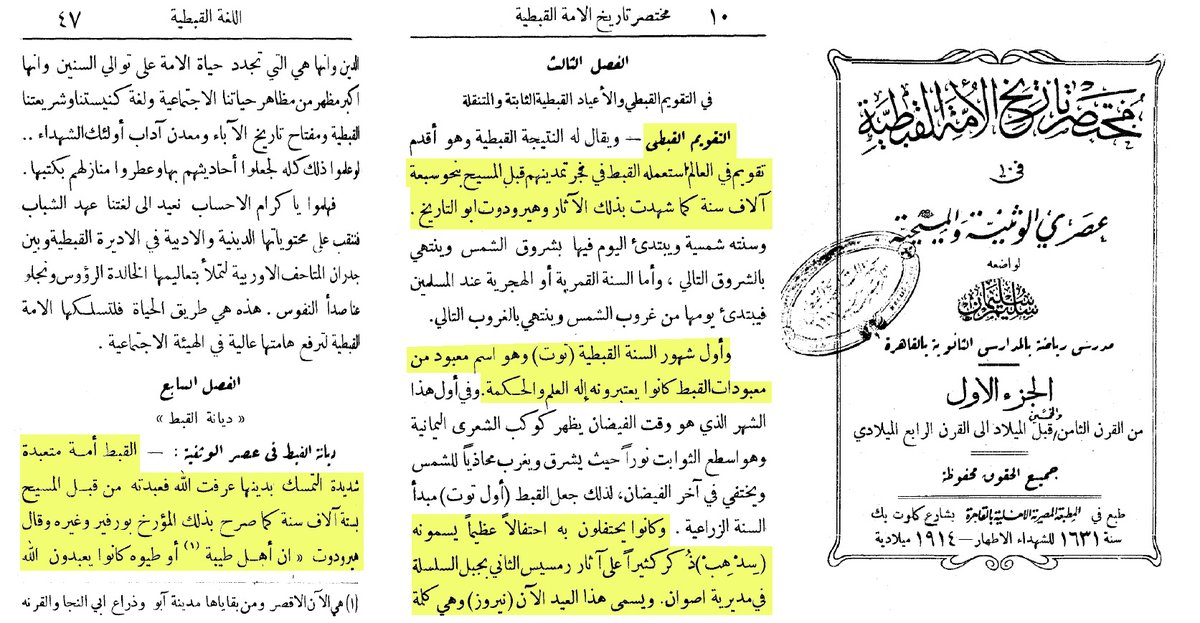 مختصر تاريخ الأمة القبطية
في
عصري الوثنية والمسيحية
لواضعه
سليم سليمان
مدرس رياضة بالمدارس الثانوية بالقاهرة
الجزء الاول
من القرن الثامن والخمسين قبل الميلاد الى القرن الرابع الميلادي
جميع الحقوق محفوظة
طبع في المطبعة المصرية الاهلية بالقاهرة بشارع كلوت بك
سنة ١٦٣١ للشهداء الاطهار — ١٩١٤ ميلادية
١٠ مختصر تاريخ الامة القبطية
الفصل الثالث
في التقويم القبطي والأعياد القبطية الثابتة والمتنقلة
التقويم القبطي — ويقال له النتيجة القبطية وهو أقدم
تقويم في العالم استعمله القبط في فجر تمدينهم قبل المسيح بنحو سبعة
آلاف سنة كما شهدت بذلك الآثار وهيرودوت ابو التاريخ .
وسنته شمسية ويبتدئ اليوم فيها بشروق الشمس وينتهي
بالشروق التالي ، وأما السنة القمرية أو الهجرية عند المسلمين
فيبتدئ يومها من غروب الشمس وينتهي بالغروب التالي.
وأول شهور السنة القبطية (توت) وهو اسم معبود من
معبودات القبط كانوا يعتبرونه إله العلم والحكمة. وفي أول هذا
الشهر الذي هو وقت الفيضان يظهر كوكب الشعرى اليمانية
وهو اسطع الثوابت نوراً حيث يشرق ويغرب محاذياً للشمس
ويختفي في آخر الفيضان، لذلك جعل القبط (أول توت) مبدأ
السنة الزراعية . وكانوا يحتفلون به احتفالاً عظيماً يسمونه
(سِدْ هِب) ذُكر كثيراً على آثار رمسيس الثاني بجبل السلسلة
في مديرية اصوان. ويسمى هذا العيد الآن (نيروز) وهي كلمة
اللغة القبطية ٤٧
الدين وانها هي التي تجدد حياة الامة على توالي السنين وانها
اكبر مظهر من مظاهر حياتنا الاجتماعية ولغة كنيستنا وشريعتنا
القبطية ومفتاح تاريخ الآباء ومعدن آداب أولئك الشهداء ..
لو علموا ذلك كله لجعلوا أحاديثهم بها وعطروا منازلهم بكتبها .
فهلموا يا كرام الاحساب نعيد الى لغتنا عهد الشباب
فننقب على محتوياتها الدينية والادبية في الاديرة القبطية وبين
جدران المتاحف الاوربية لتملأ بتعاليمها الخالدة الرؤوس ونجلو
عنا صدأ النفوس . هذه هي طريق الحياة فلتسلكها الامة
القبطية لترفع هامتها عالية في الهيئة الاجتماعية .
الفصل السابع
« ديانة القبط »
ديانة القبط في عصر الوثنية : — القبط أمة متعبدة
شديدة التمسك بدينها عرفت الله فعبدته من قبل المسيح
بستة آلاف سنة كما صرح بذلك المؤرخ بورفير وغيره وقال
هيرودوت « ان أهل طيبة (١) أو طيوه كانوا يعبدون الله
(١) هي الآن الاقصر ومن بقاياها مدينة آبو وذراع ابي النجا والقرنه